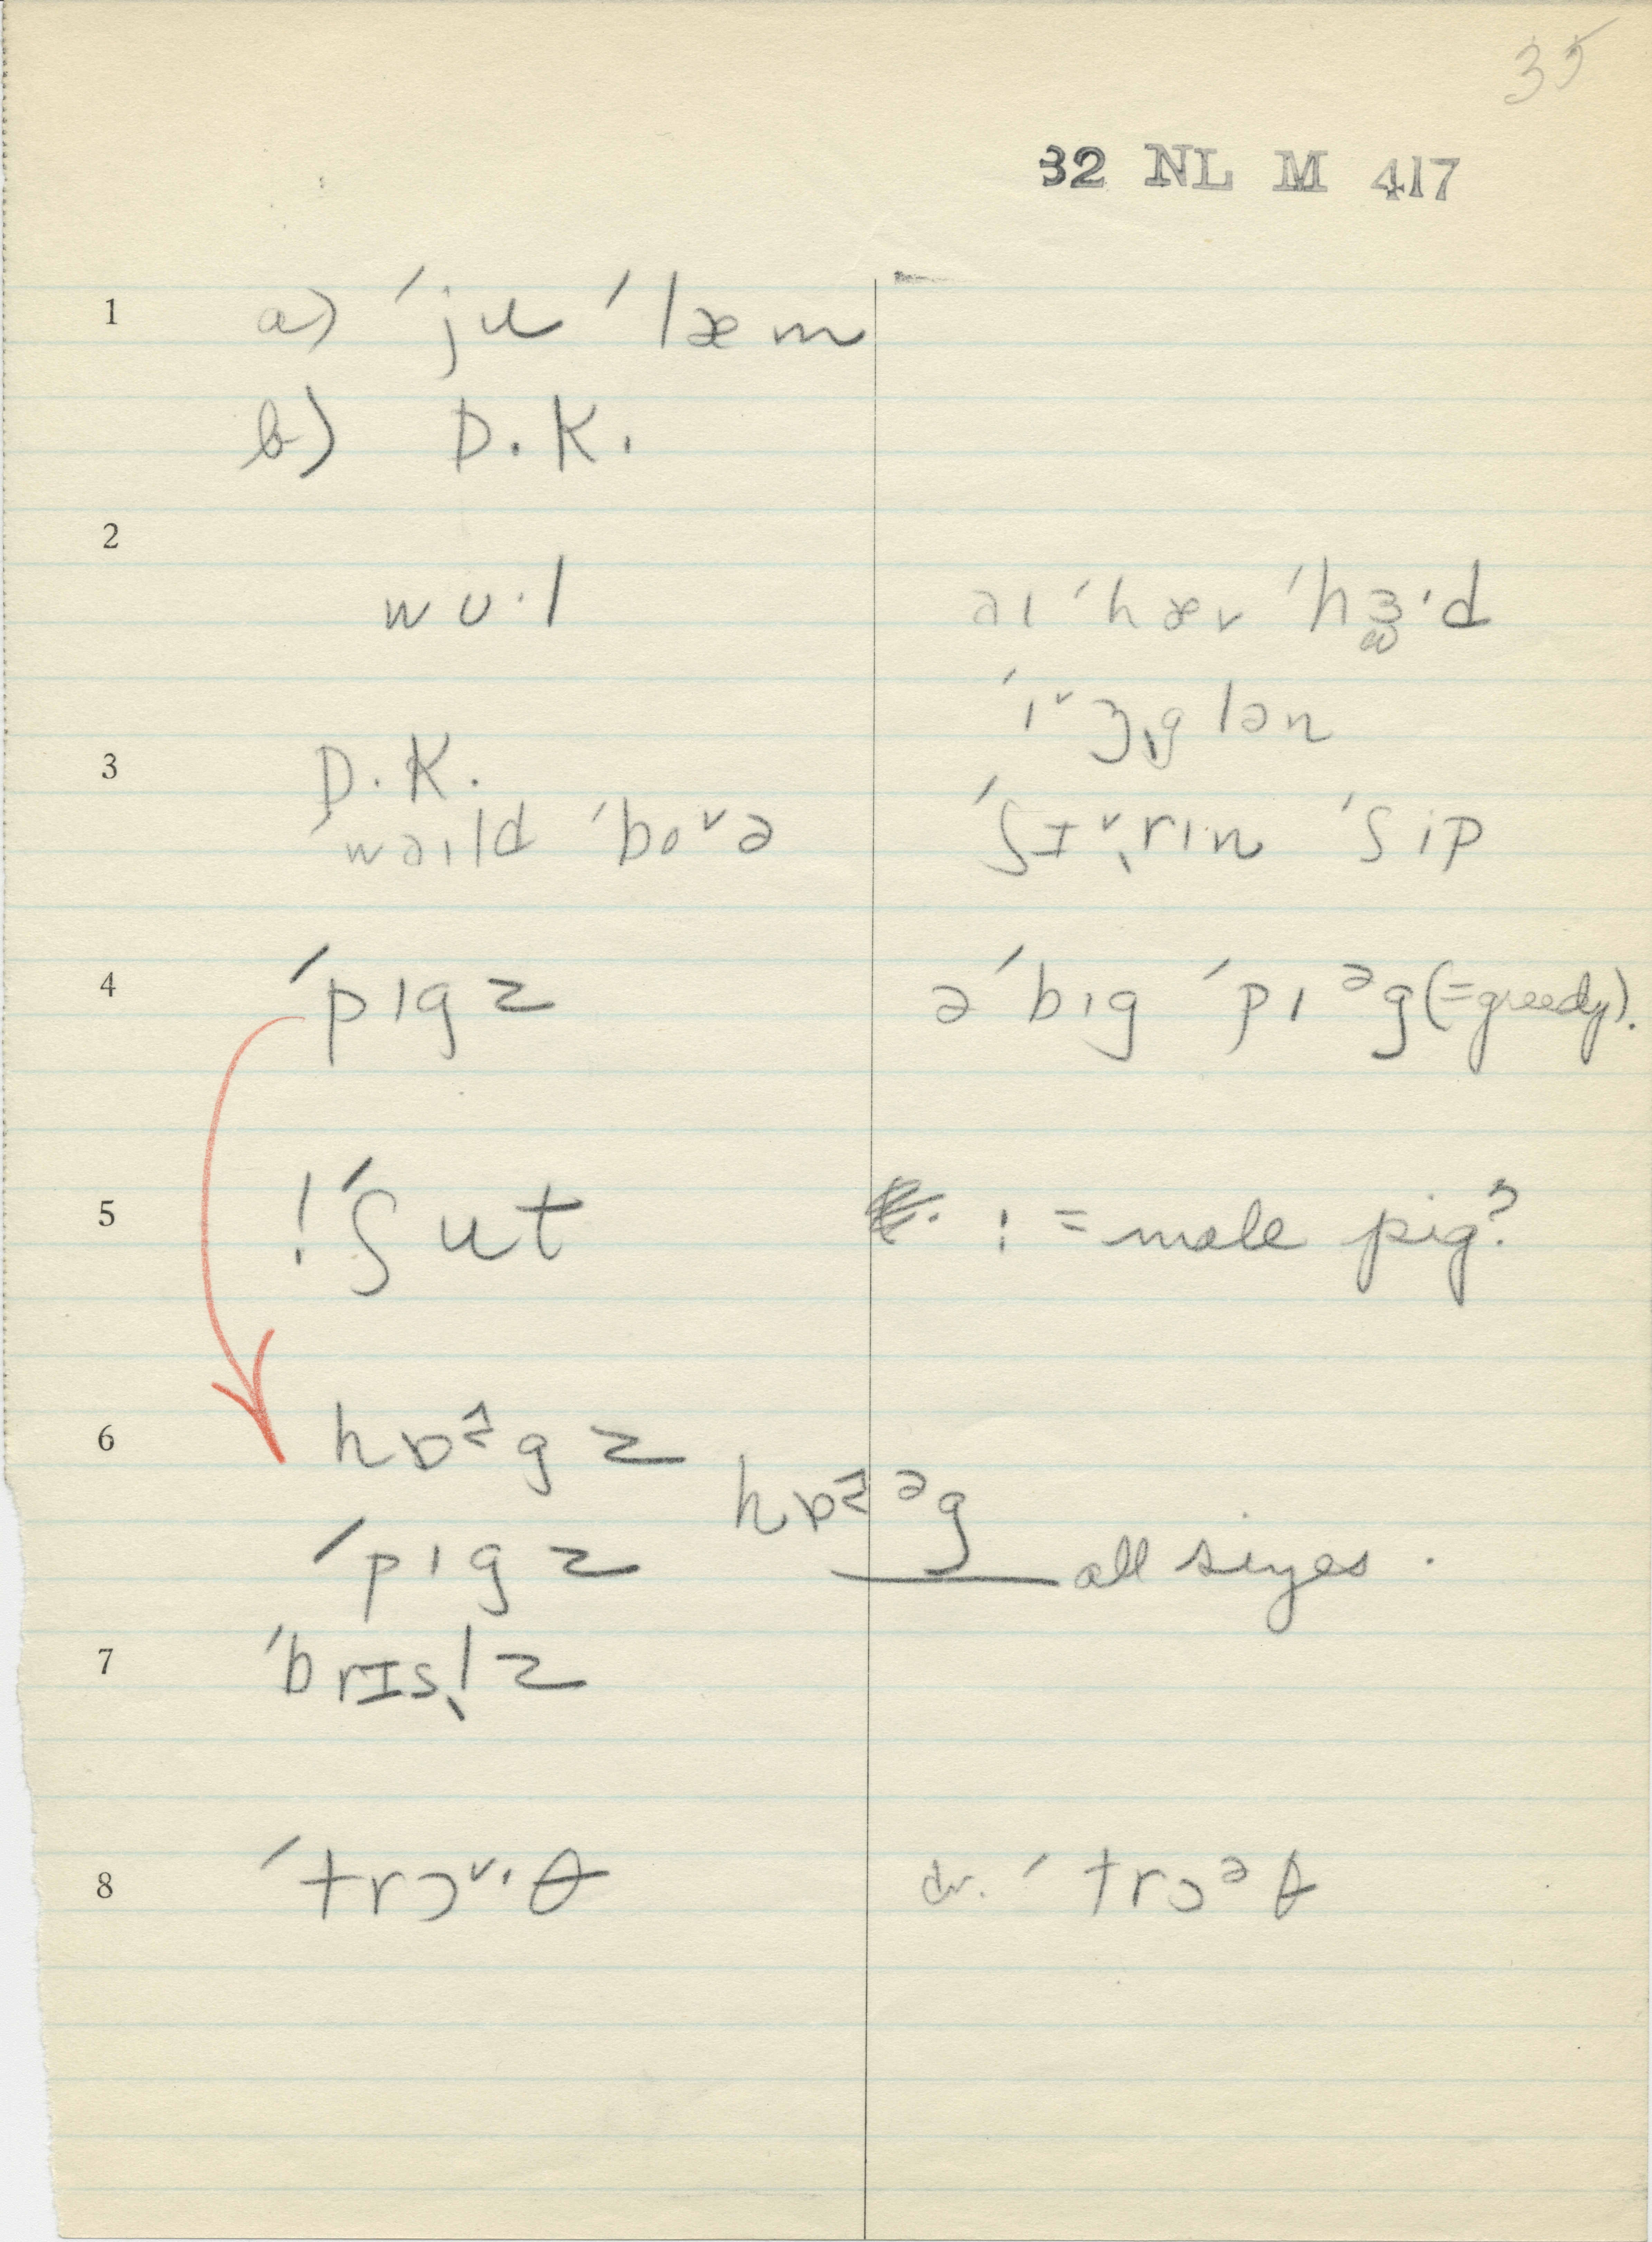 35
32 NL M 417
1 a) ˈju ˈlæm
b) D.K.
2
wʊ·l
aɪ ˈhæv ˈhɜ·d
ˈɪ˅ ʒɪg lən
3 D.K.
waɪld ˈbo˅ə
ˈʃɪ˅rɪn ˈʃip
4 ˈpɪgz
ə ˈbɪg ˈpɪᵊg (=greedy).
5 !ˈʃut
! = male pig?
6 hɒgz
hɒᵊg
ˈpɪgz
all sizes.
7 ˈbrɪsl̩z
8 ˈtrɔ˅·θ
dr. ˈtrɔᵊθ